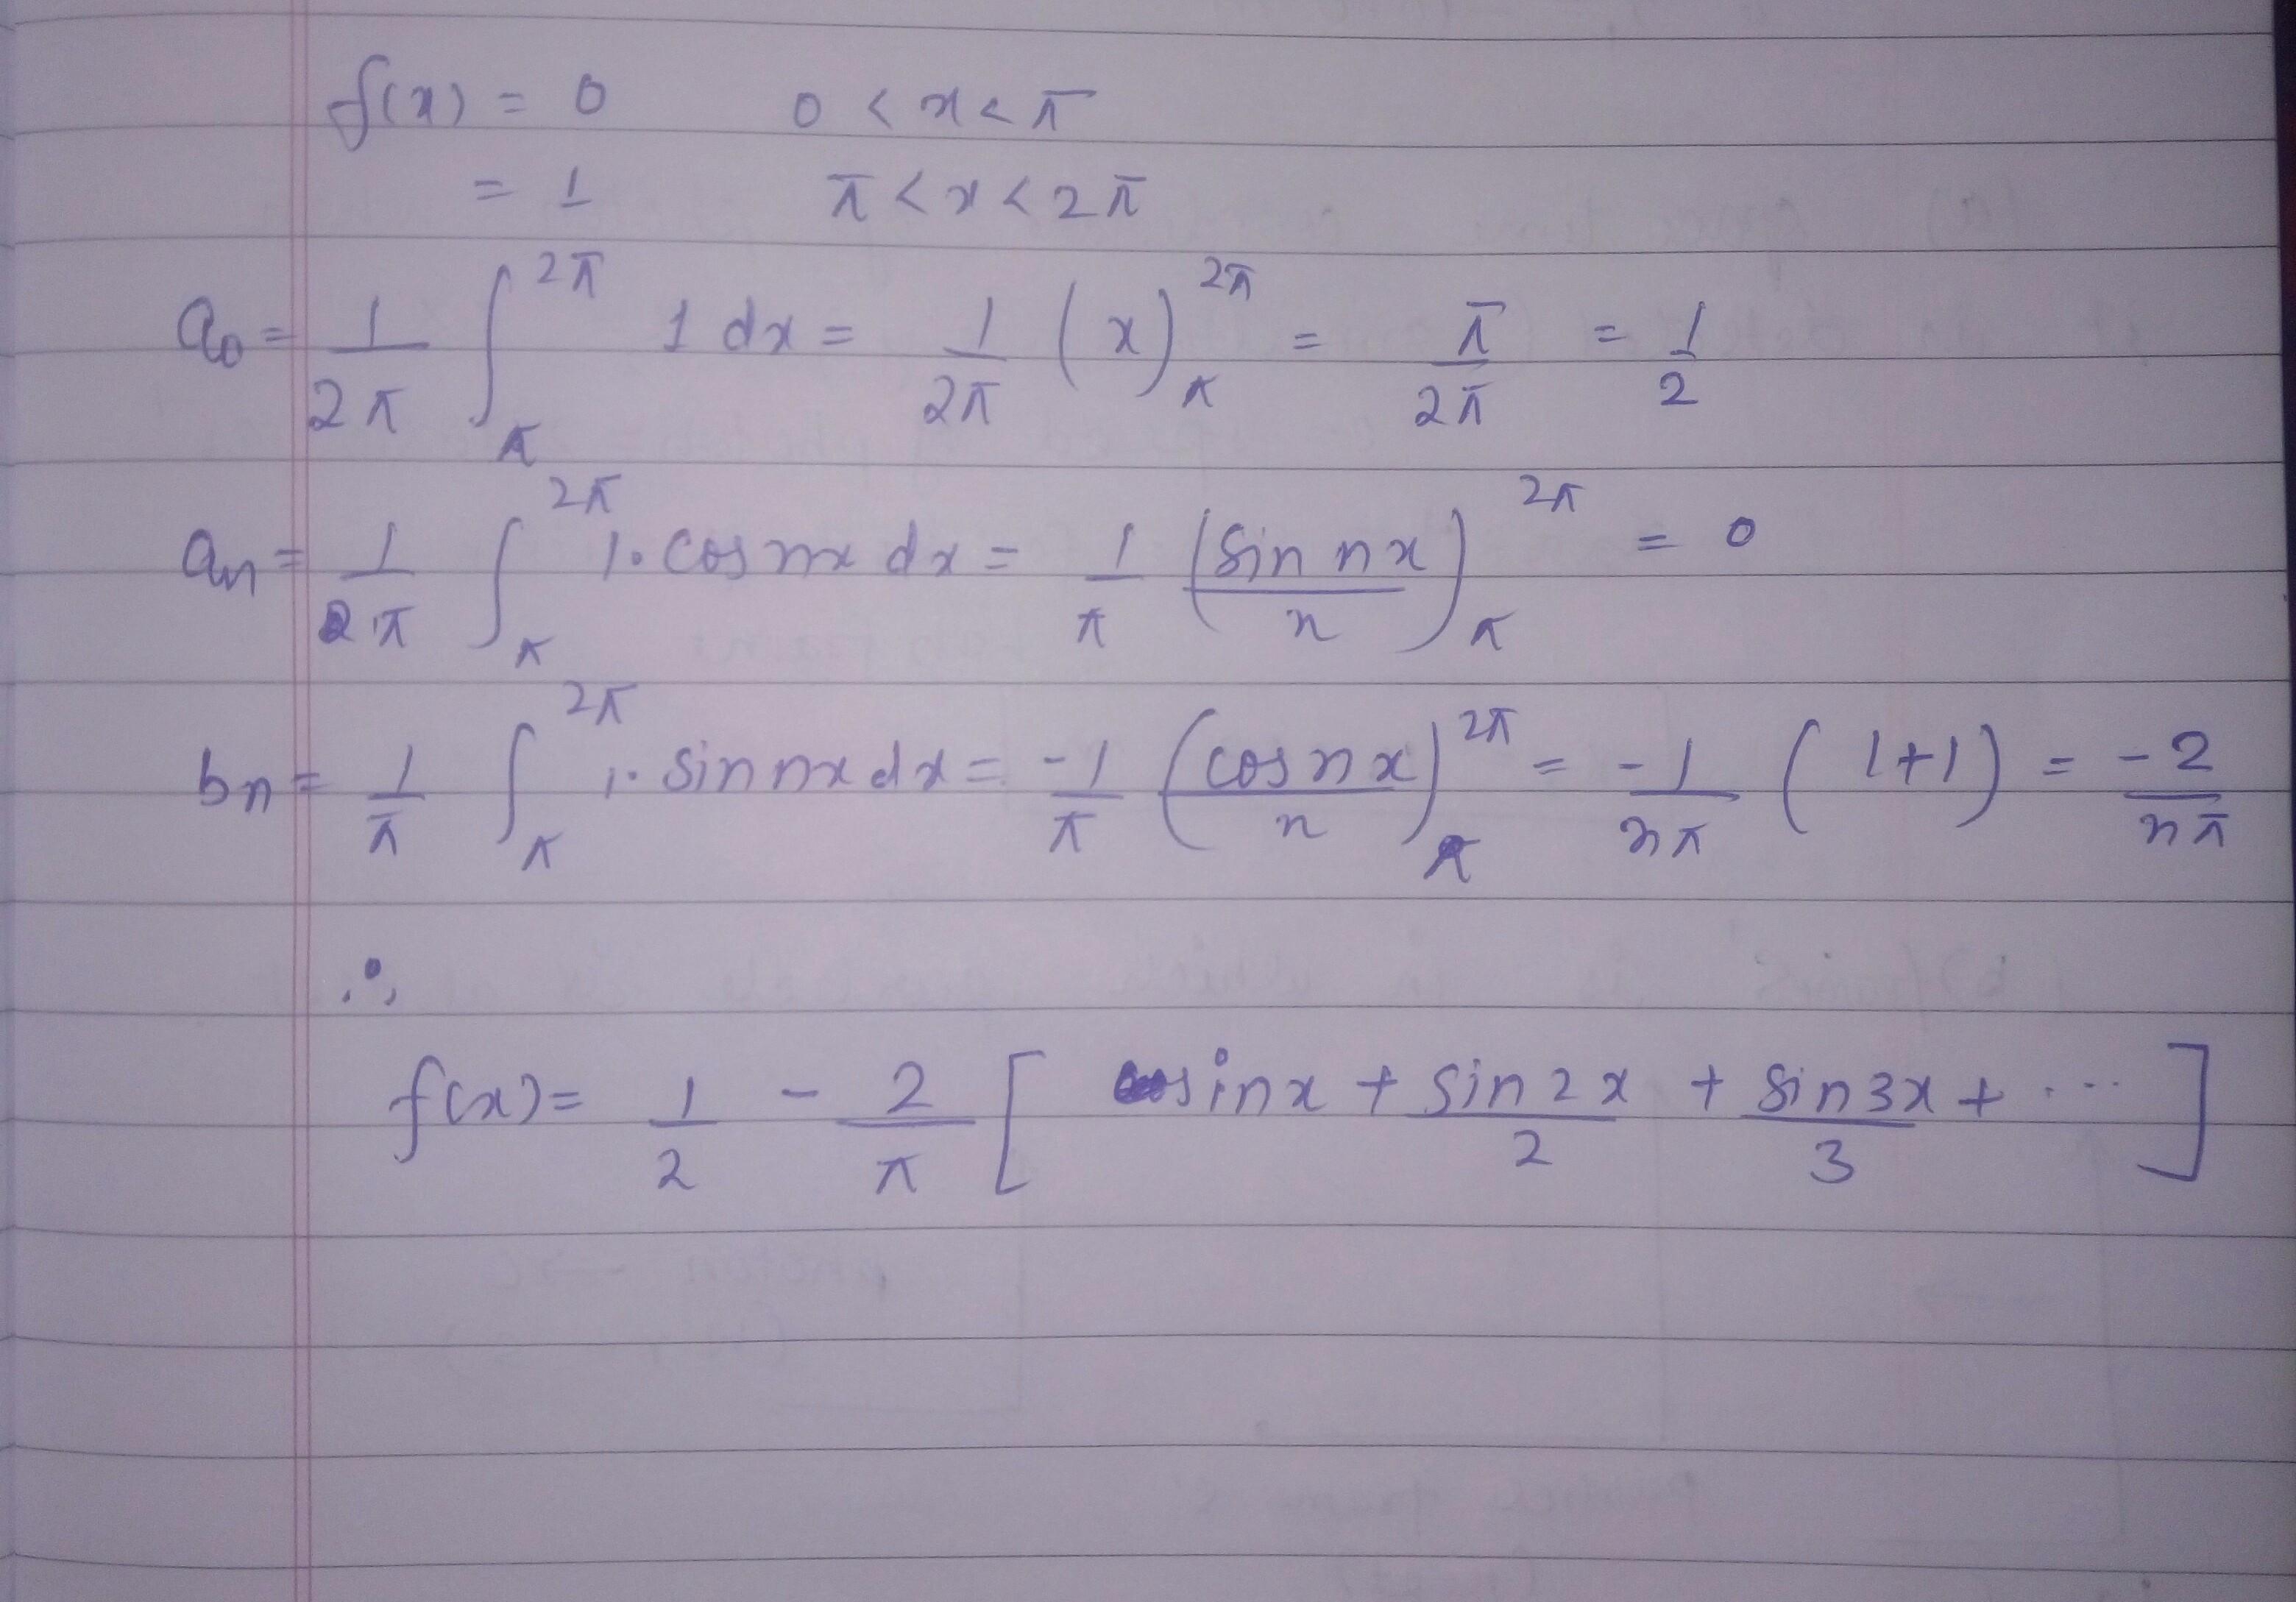 f(x) = 0 0 < x < π
= 1 π < x < 2π
a₀ = 1/2π ∫_π^2π 1 dx = 1/2π (x)_π^2π = π/2π = 1/2
aₙ = 1/2π ∫_π^2π 1. cos nx dx = 1/π (sin nx/n)_π^2π = 0
bₙ = 1/π ∫_π^2π 1. sin nx dx = -1/π (cos nx/n)_π^2π = -1/nπ (1+1) = -2/nπ
∴
f(x) = 1/2 - 2/π [ sin x + sin 2x/2 + sin 3x/3 + ... ]